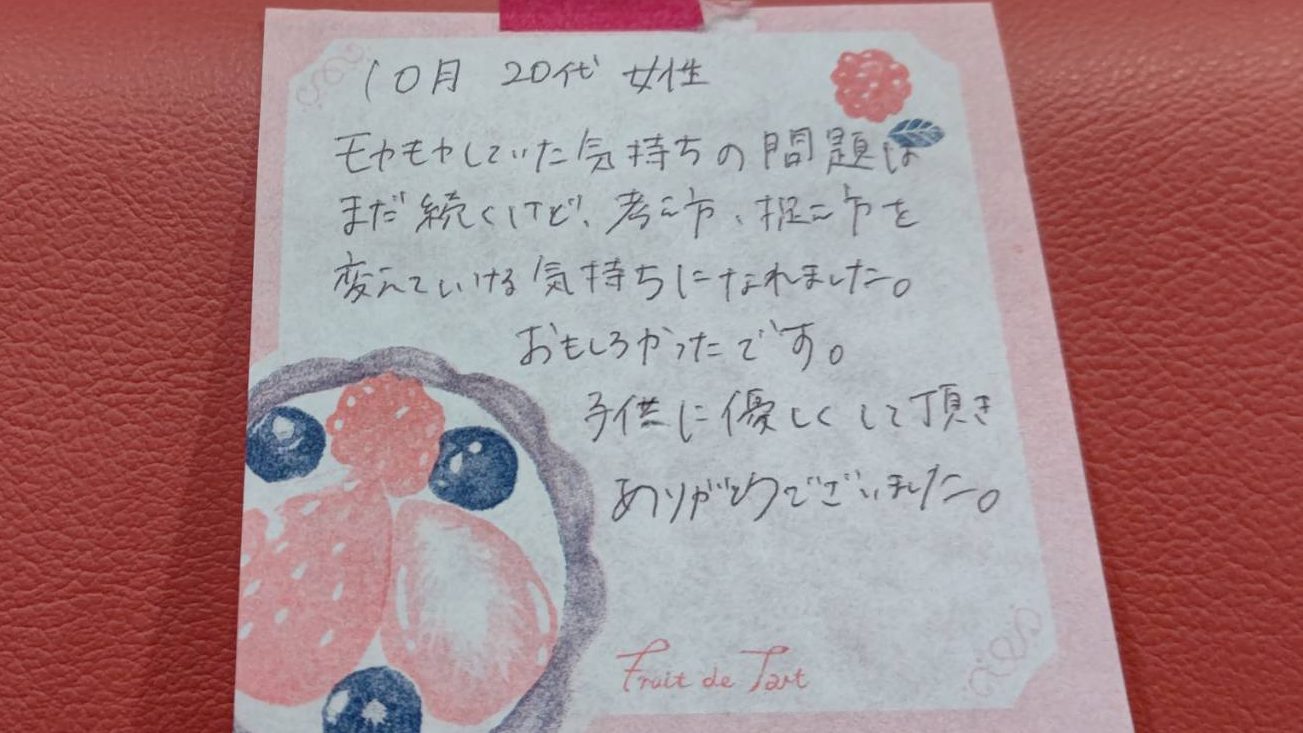 10月 20代 女性
モヤモヤしていた気持ちの問題は
まだ続くけど、考え方、捉え方を
変えていける気持ちになれました。
おもしろかったです。
子供に優しくして頂き
ありがとうございました。
Fruit de Tart